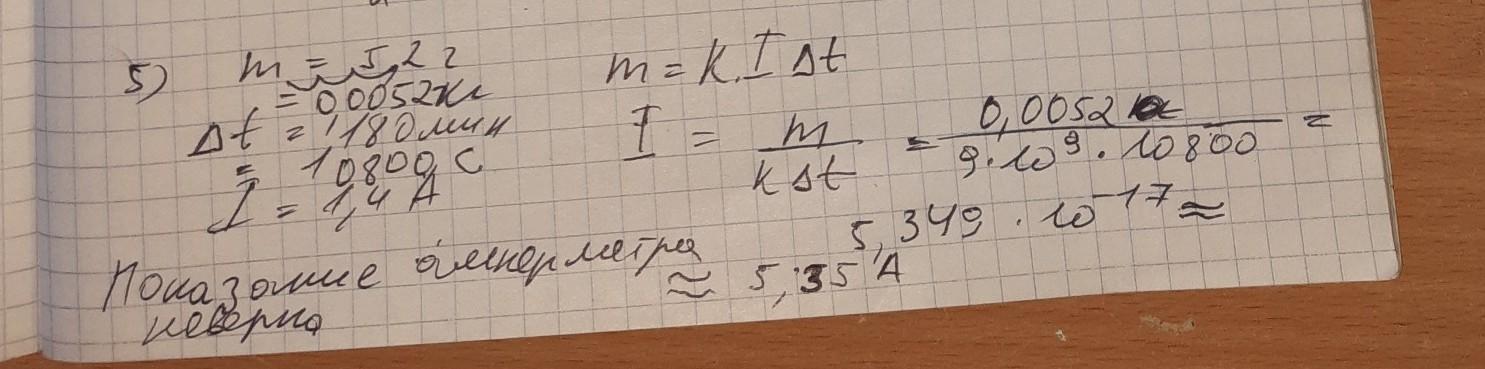 5) m = 5,2 г
= 0,0052 кг
Δt = 180 мин
= 10800 с
I = 1,4 А
m = k I Δt
I = m / k Δt = 0,0052 / 9 · 10⁹ · 10800 =
5,349 · 10⁻¹⁷ ≈
≈ 5,35 А
Показание амперметра
неверно